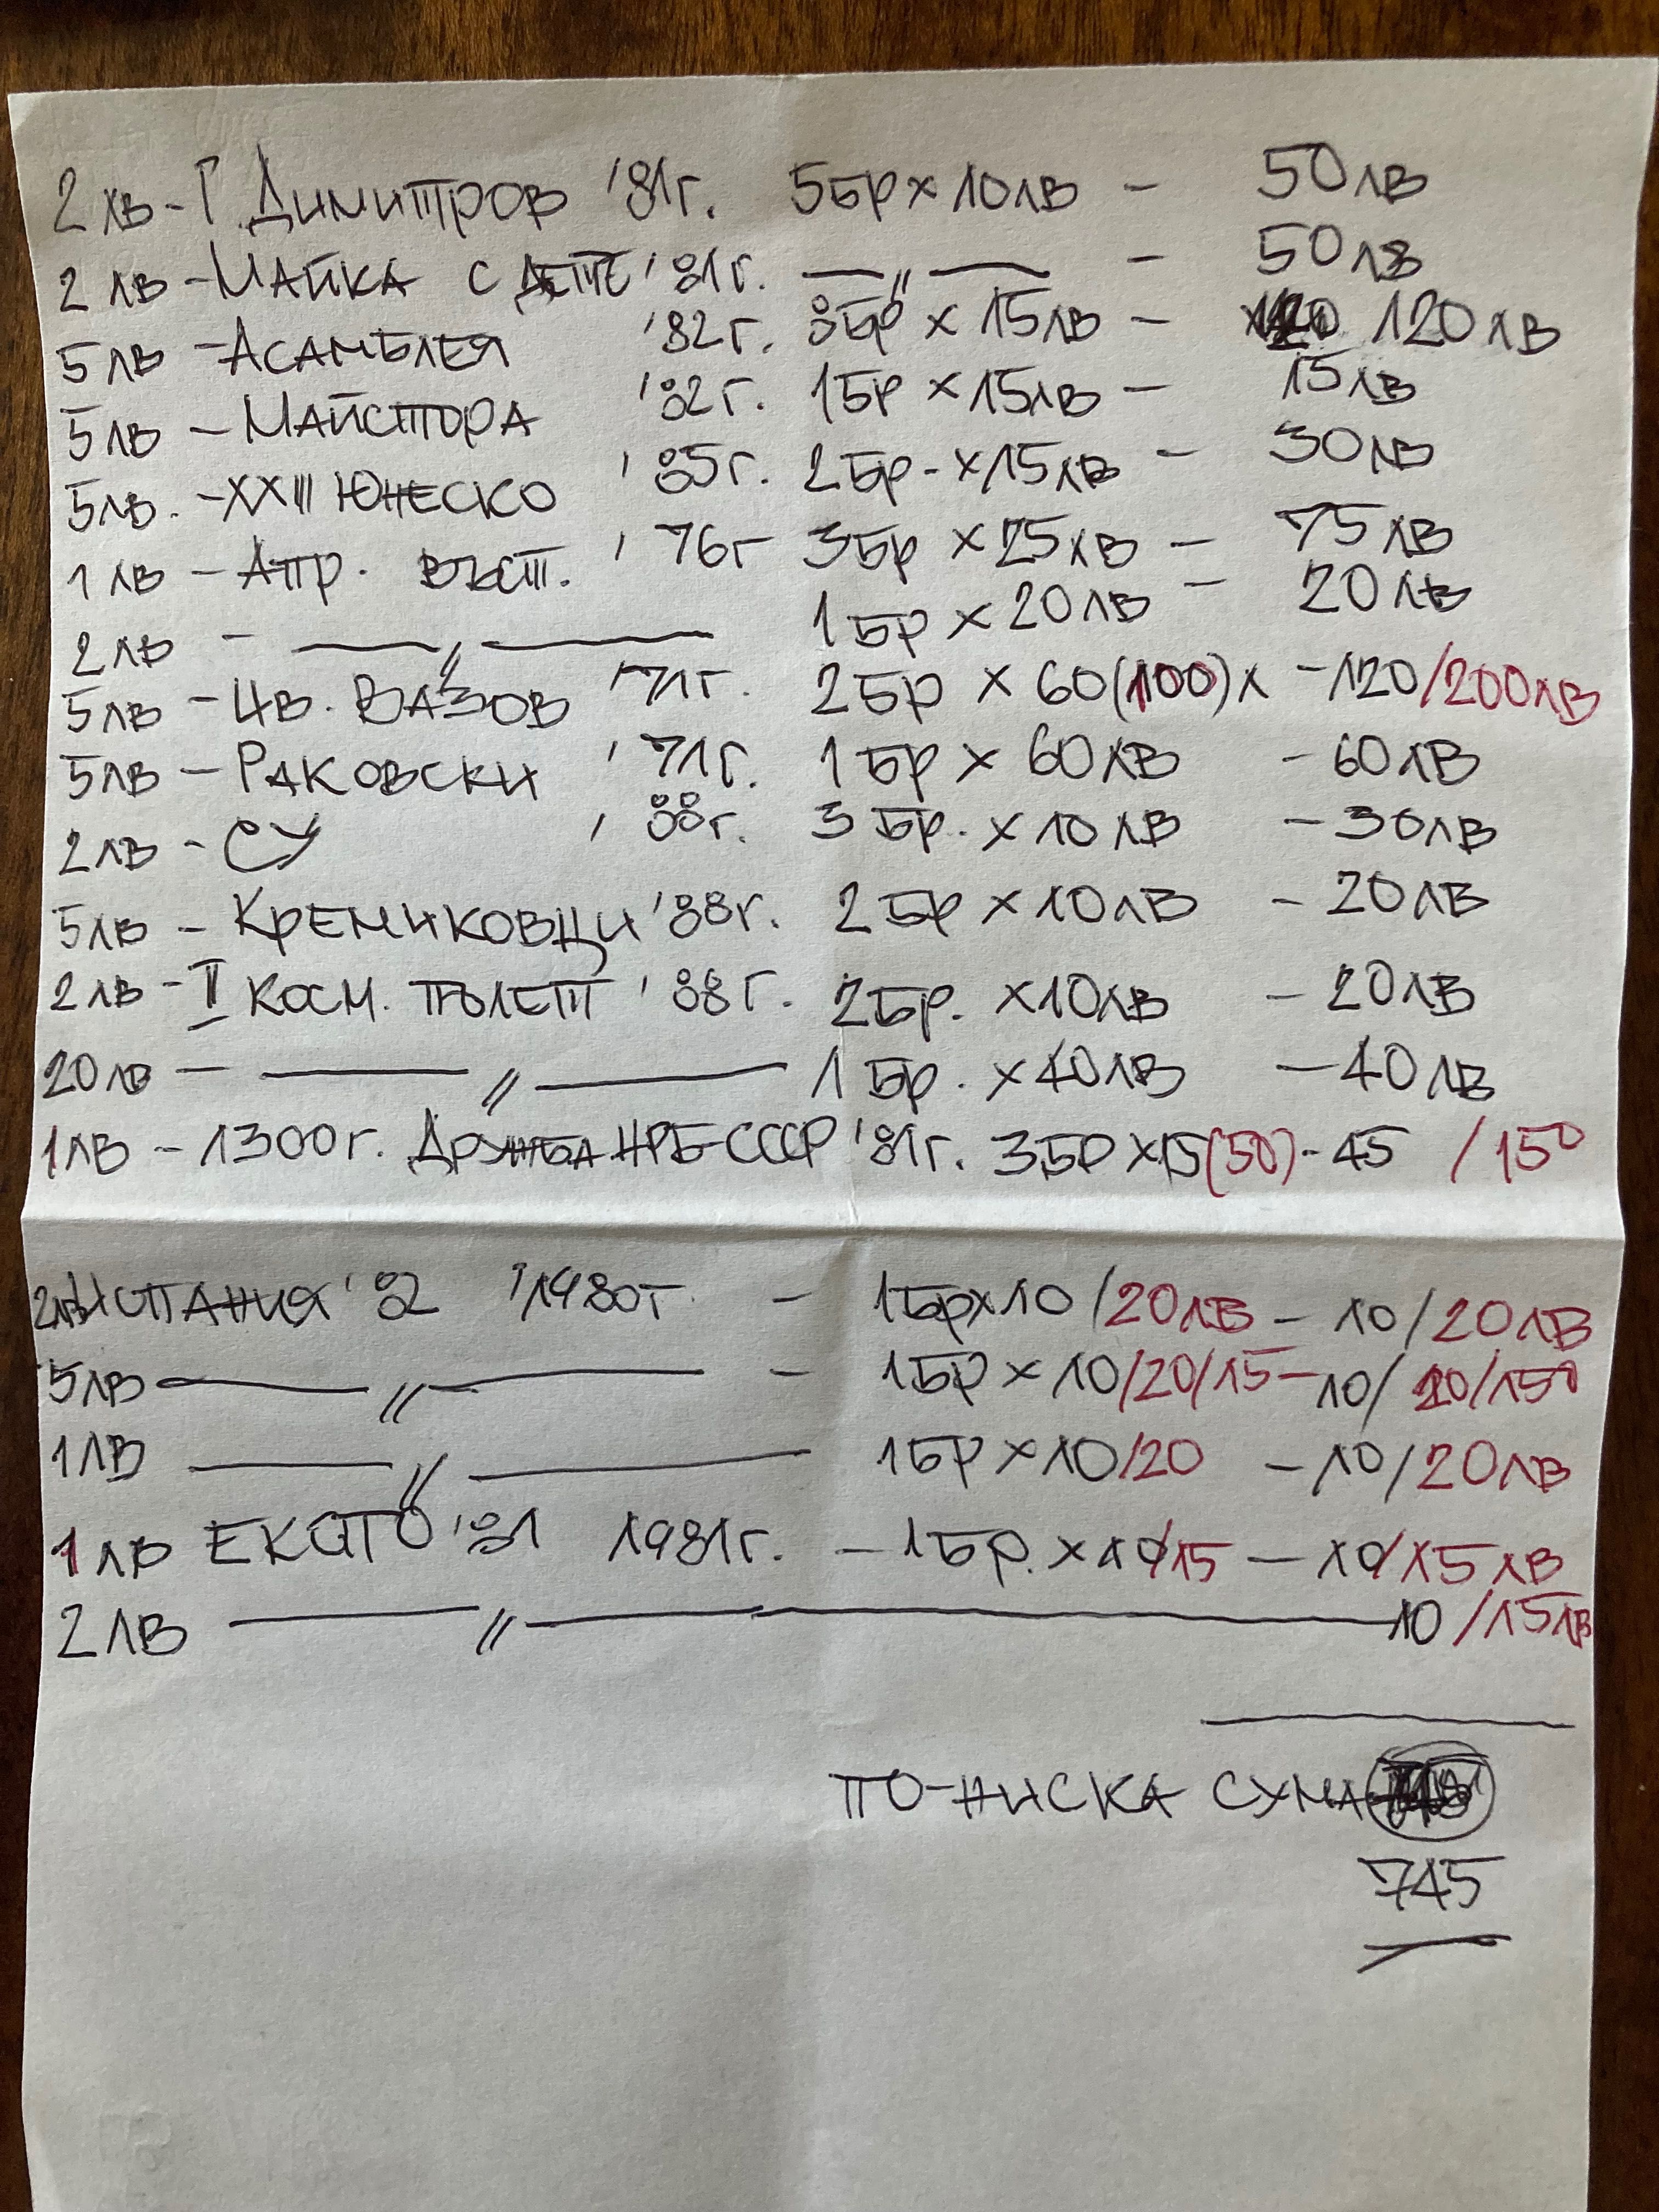 2 лв - Г. Димитров '81г. 5бр x 10лв - 50лв
2 лв - Майка с дете '81г. —〃— - 50лв
5 лв - Асамблея '82г. 8бр x 15лв - 120лв
5 лв - Майстора '82г. 1бр x 15лв - 15лв
5лв. - XXIII ЮНЕСКО '85г. 2бр - x 15лв - 30лв
1 лв - Апр. въст. '76г 3бр x 25лв - 75лв
2лв - —〃— 1бр x 20лв - 20лв
5лв - Ив. Вазов '71г. 2бр x 60(100)x - 120/200лв
5лв - Раковски '71г. 1бр x 60лв - 60лв
2лв - СУ '88г. 3бр. x 10лв - 30лв
5лв - Кремиковци '88г. 2бр x 10лв - 20лв
2лв - II косм. полет '88г. 2бр. x10лв - 20лв
20лв - —〃— 1бр. x 40лв - 40лв
1лв - 1300г. Дружба НРБ-СССР '81г. 3бр x15(50) - 45 /150
2лв Испания '82 '1980г. - 1бр x 10/20лв - 10/20лв
5лв —〃— - 1бр x 10/20/15 - 10/20/150
1лв —〃— 1бр x 10/20 - 10/20лв
1лв ЕКСПО '81 1981г. - 1бр. x 10/15 - 10/15лв
2лв —〃— 10/15лв
по-ниска сума
745